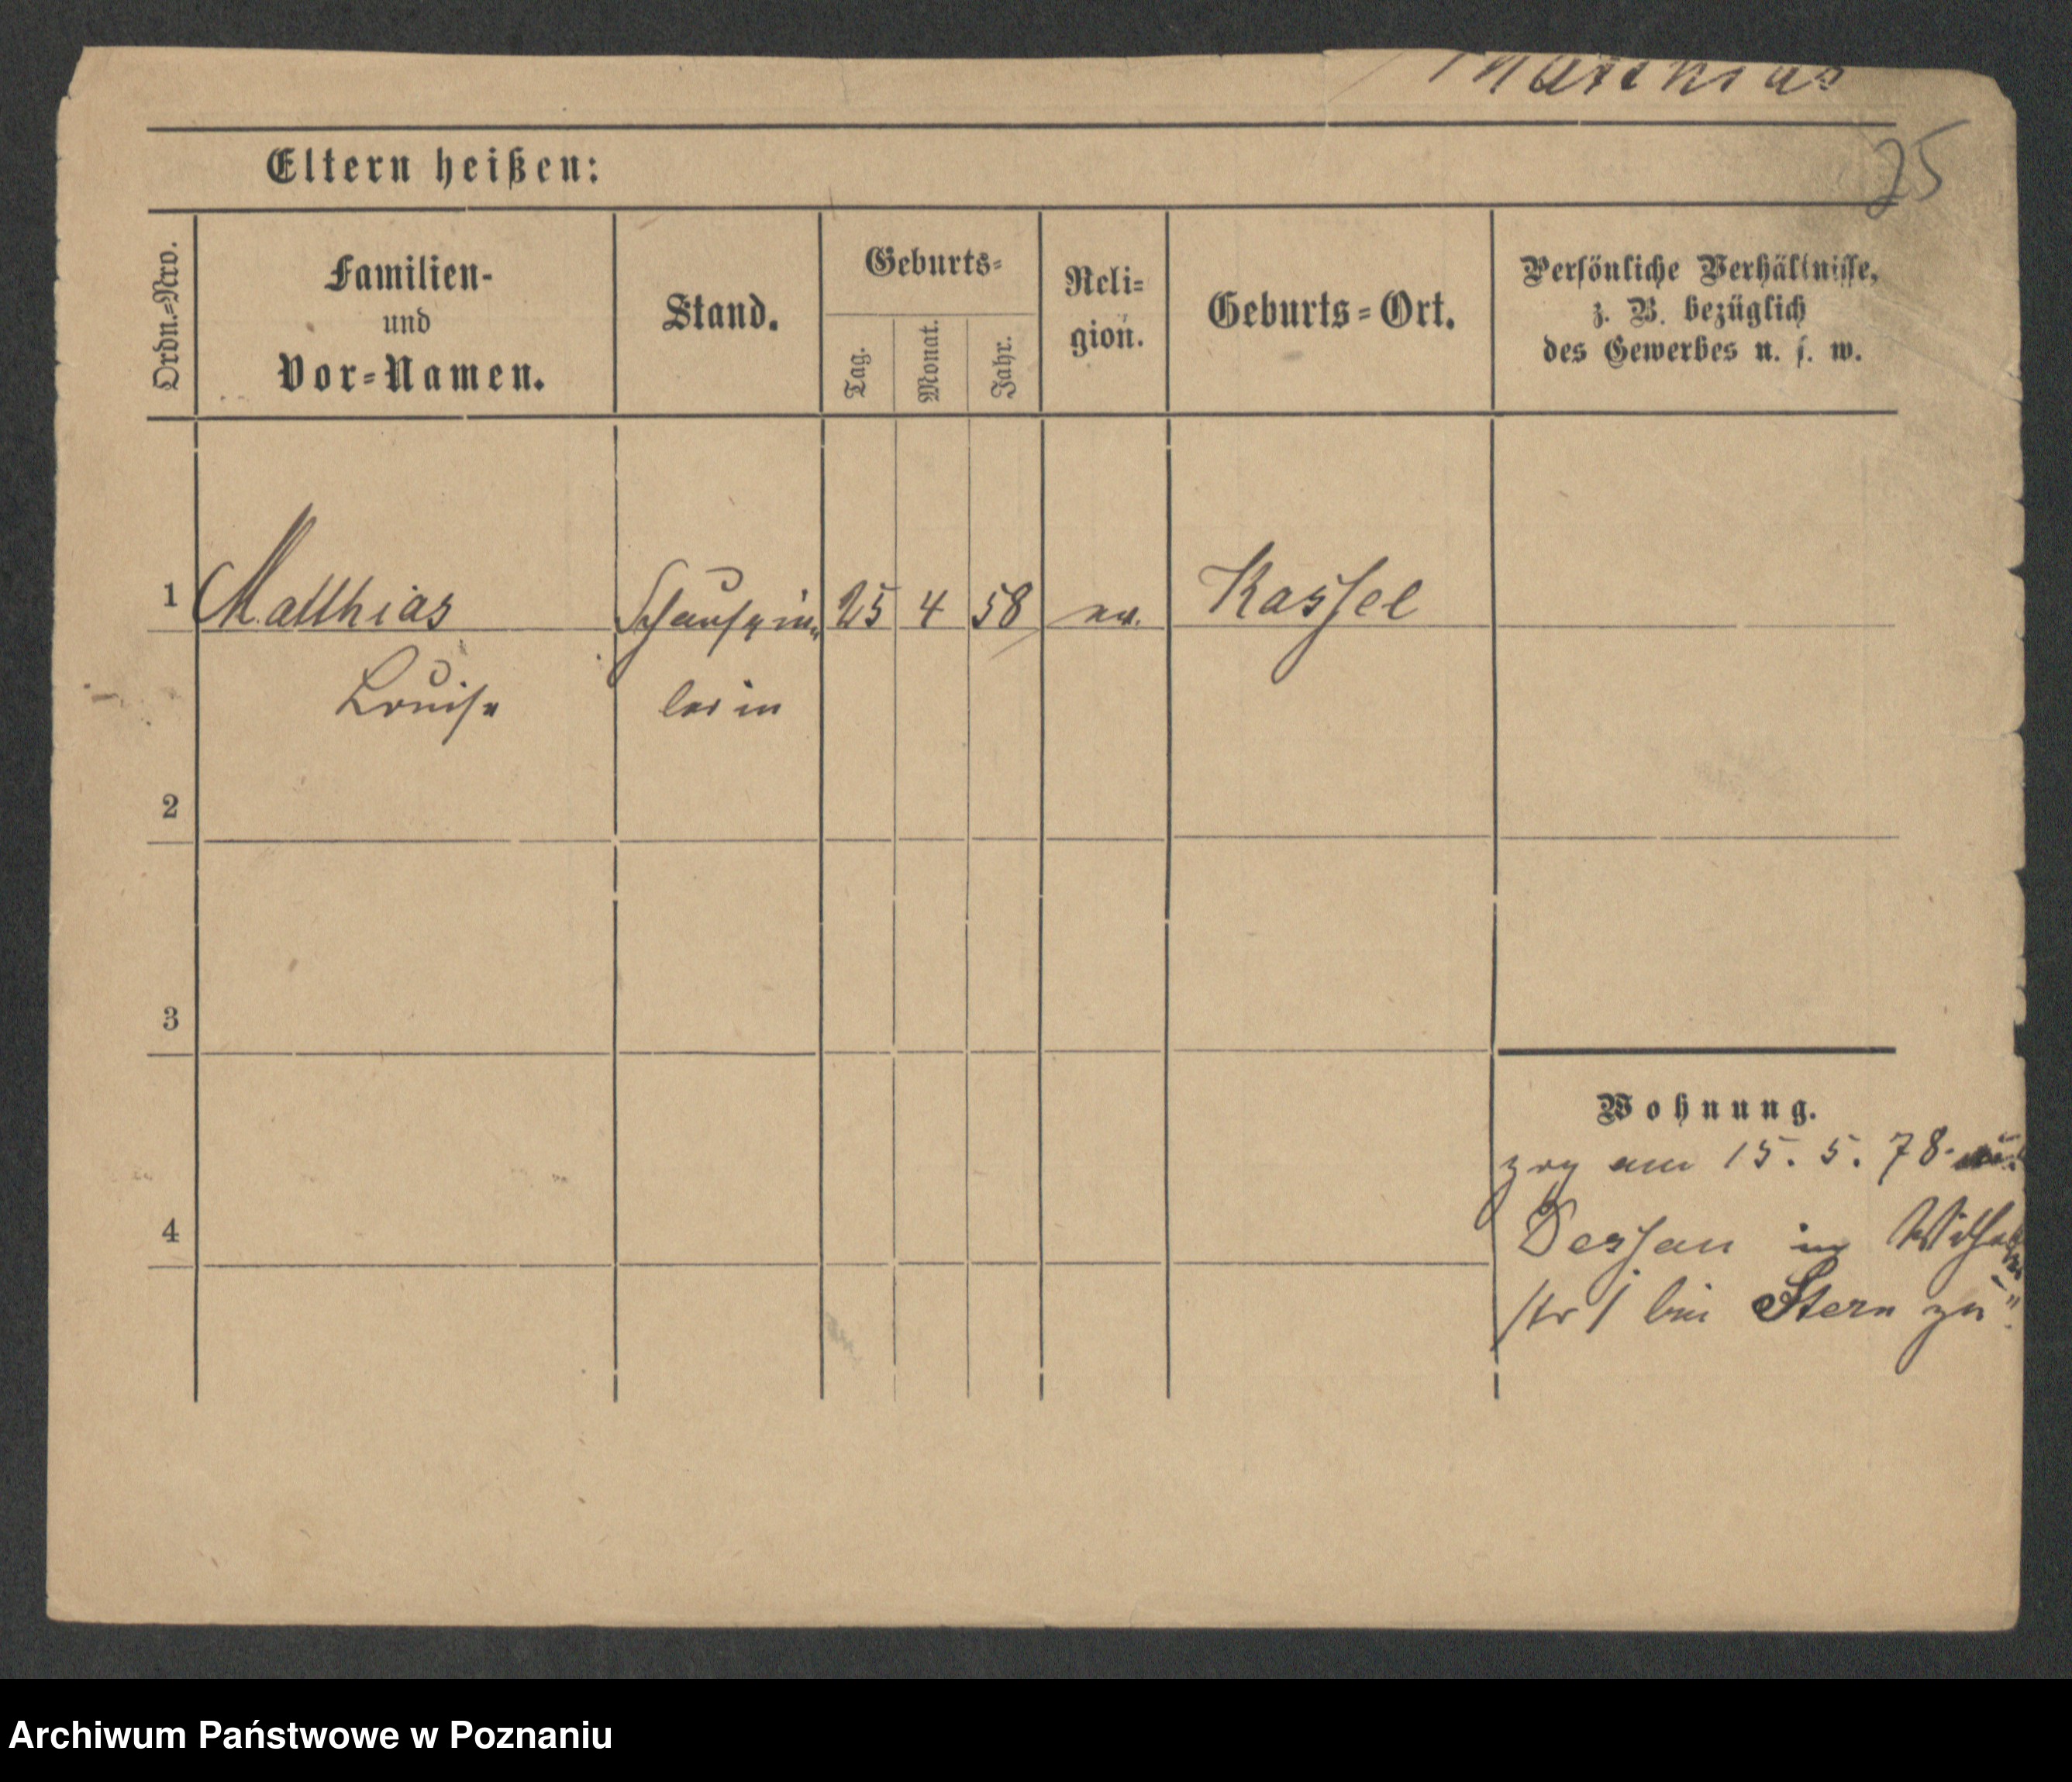 Matthias
25
Eltern heißen:
Ordn.=Nro.
Familien-
und
Vor=Namen.
Stand.
Geburts=
Tag.
Monat.
Jahr.
Reli=
gion.
Geburts=Ort.
Persönliche Verhältnisse,
z. B. bezüglich
des Gewerbes u. s. w.
1 Matthias Schauspie 25 4 58 ev. Kassel
Louise lerin
2
3
Wohnung.
zog am 15. 5. 78
4
Dessau in Wilhelm
str 1 bei Stern zu
Archiwum Państwowe w Poznaniu